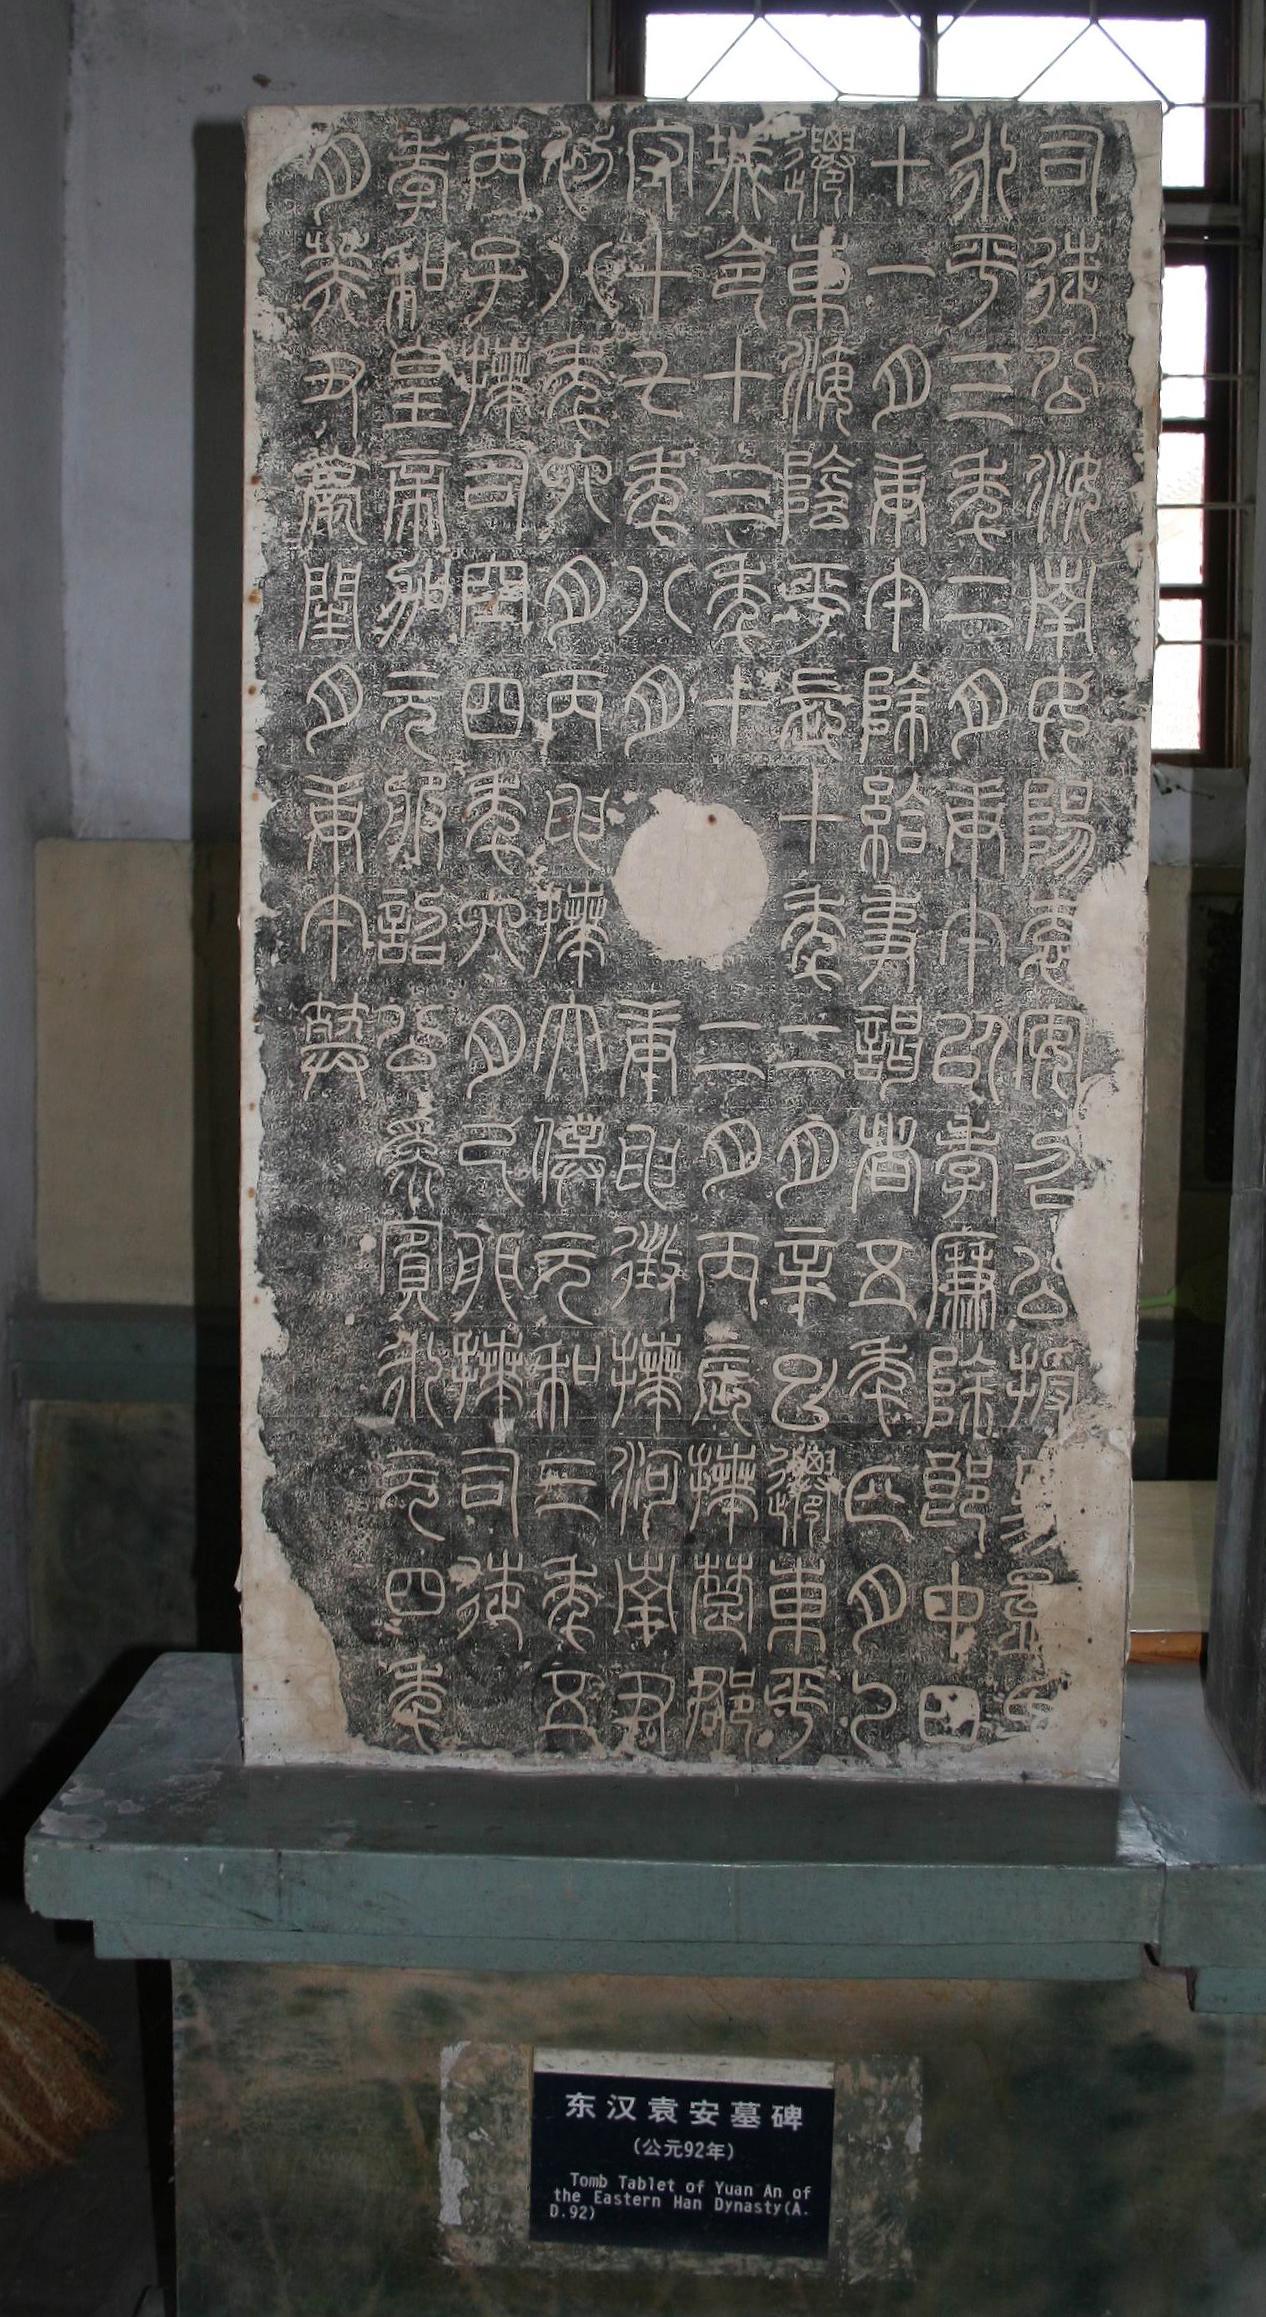 司徒公汝南女陽袁安召公授易孟氏
永平三年二月庚午以孝廉除郎中四
十一月庚午除給事謁者五年正月乙
遷東海陰平長十年二月辛巳遷東平
城令十三年十二月丙辰拜楚郡
守十七年八月庚申徵拜河南尹
初八年六月丙申拜太僕元和三年五
丙子拜司空四年六月己卯拜司徒
孝和皇帝加元服詔公為賓永元四年
月癸丑薨閏月庚午葬
东汉袁安墓碑
(公元92年)
Tomb Tablet of Yuan An of
the Eastern Han Dynasty(A.
D.92)